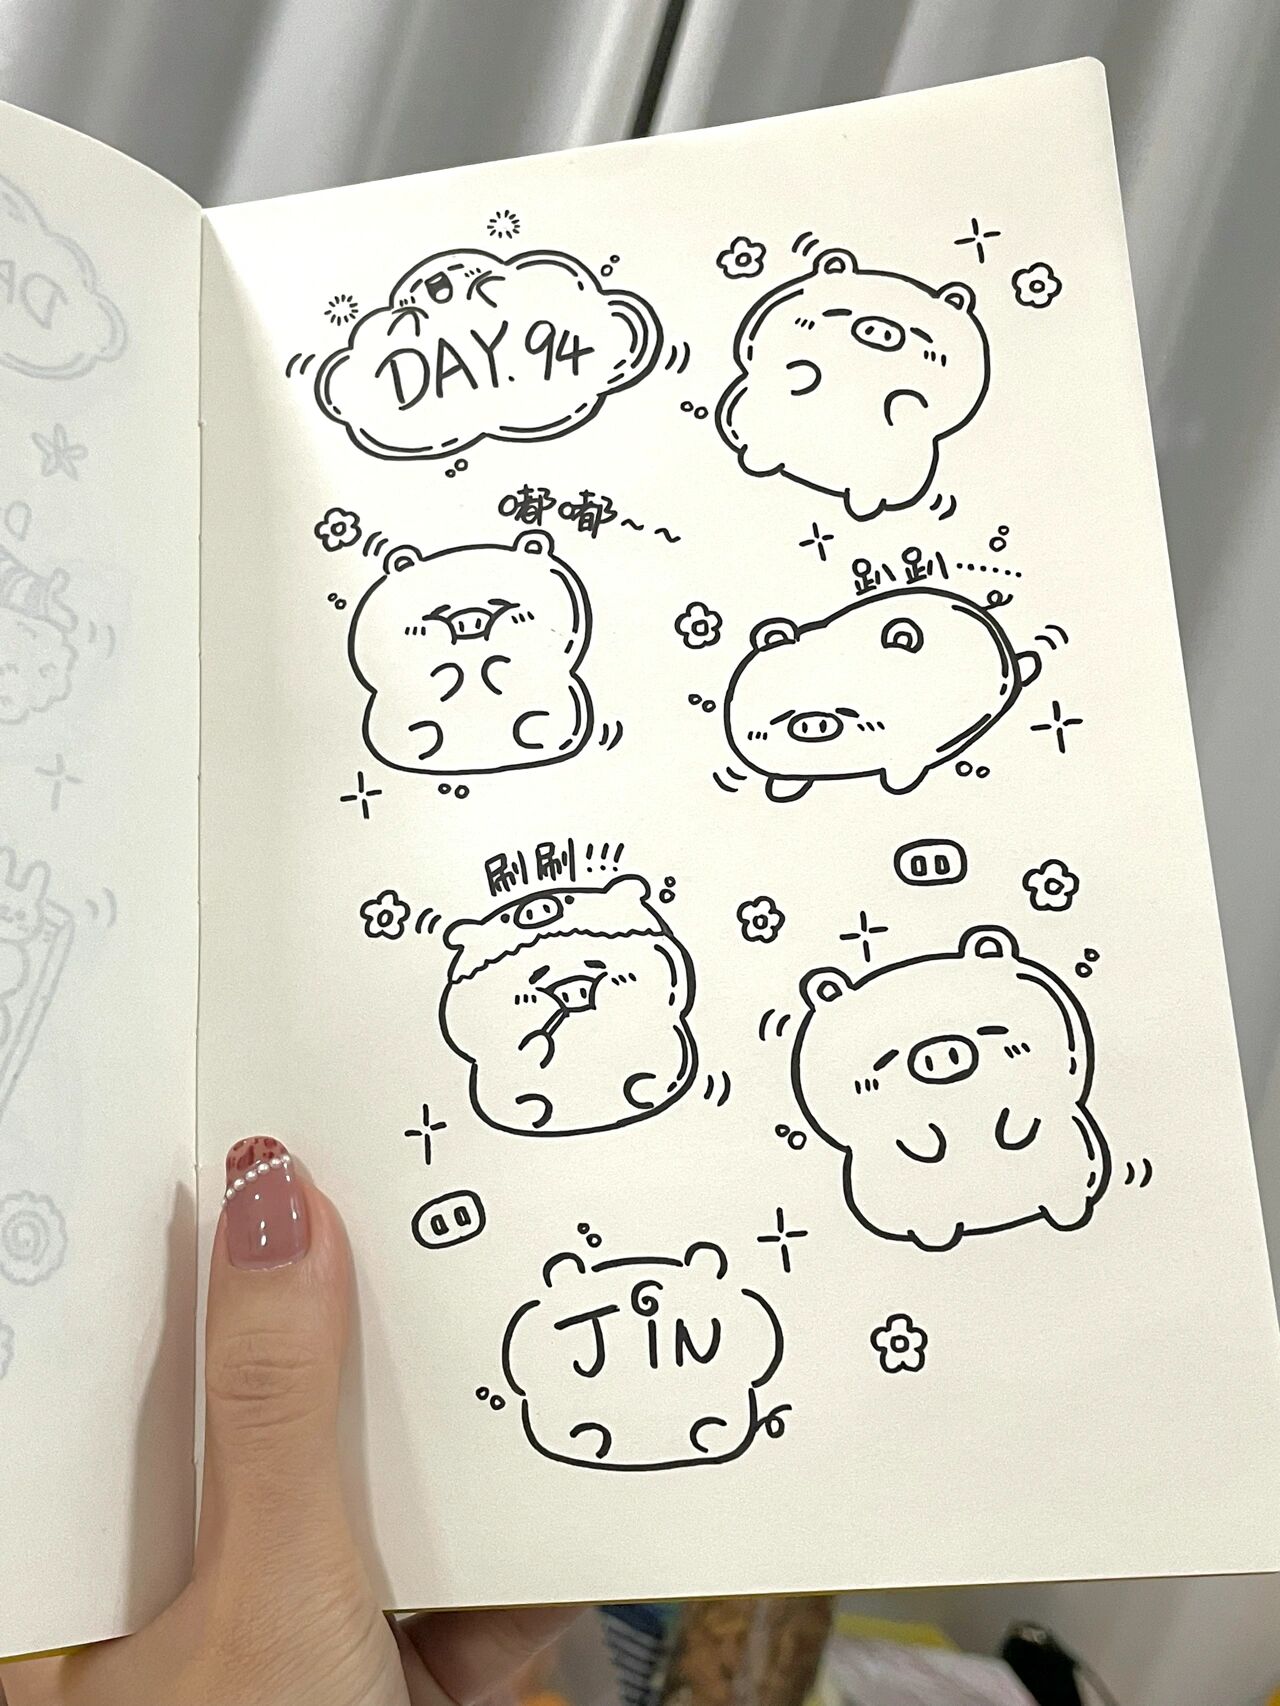 DAY.94
嘟嘟~~
趴趴······
刷刷!!!
JiN